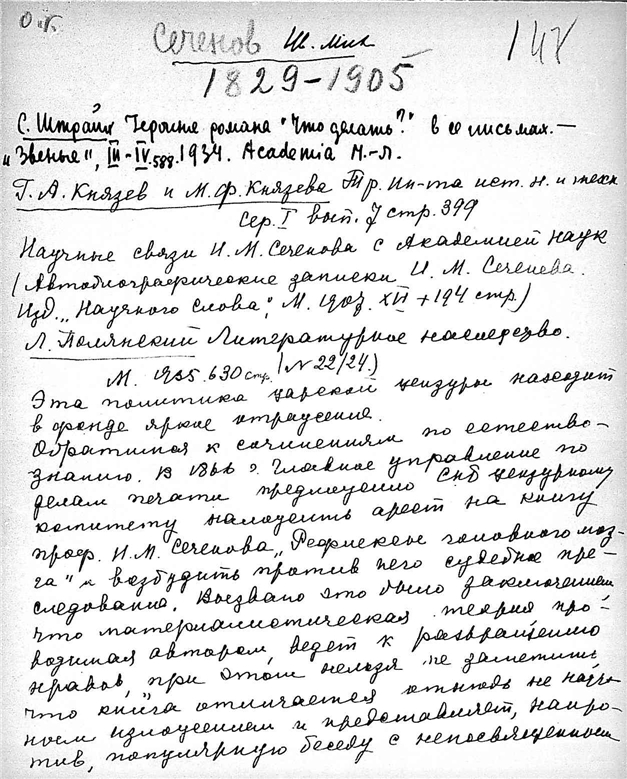 О.К.
147
Сеченов Ив. Мих
1829-1905
С. Штрайх Героине романа "Что делать?" в ее письмах.—
"Звенье", III-IV, 588. 1934. Academia М.-Л.
Г. А. Князев и М. Ф. Князева Тр. Ин-та ист. н. и техн
Сер. I вып. 7 стр. 399
Научные связи И. М. Сеченова с Академией Наук
(Автобиографические записки И. М. Сеченева.
Изд. „Научного Слова", М. 1907. XII + 194 стр.)
Л. Полянский Литературное наследство.
М. 1935. 630 стр. (N 22/24.)
Эта политика царской цензуры находит
в фонде яркое отражение.
Обратимся к сочинениям по естество-
знанию. В 1866 г. Главное управление по
делам печати предложило СПб цензурному
комитету наложить арест на книгу
проф. И. М. Сеченова „Рефлексы головного моз-
га" и возбудить против него судебное пре-
следование. Вызвано это было заключением
что материалистическая теория про-
водимая автором, ведет к развращению
нравов, при этом нельзя не заметить
что книга отличается отнюдь не науч-
ным изложением и представляет, напро-
тив, популярную беседу с непосвященными